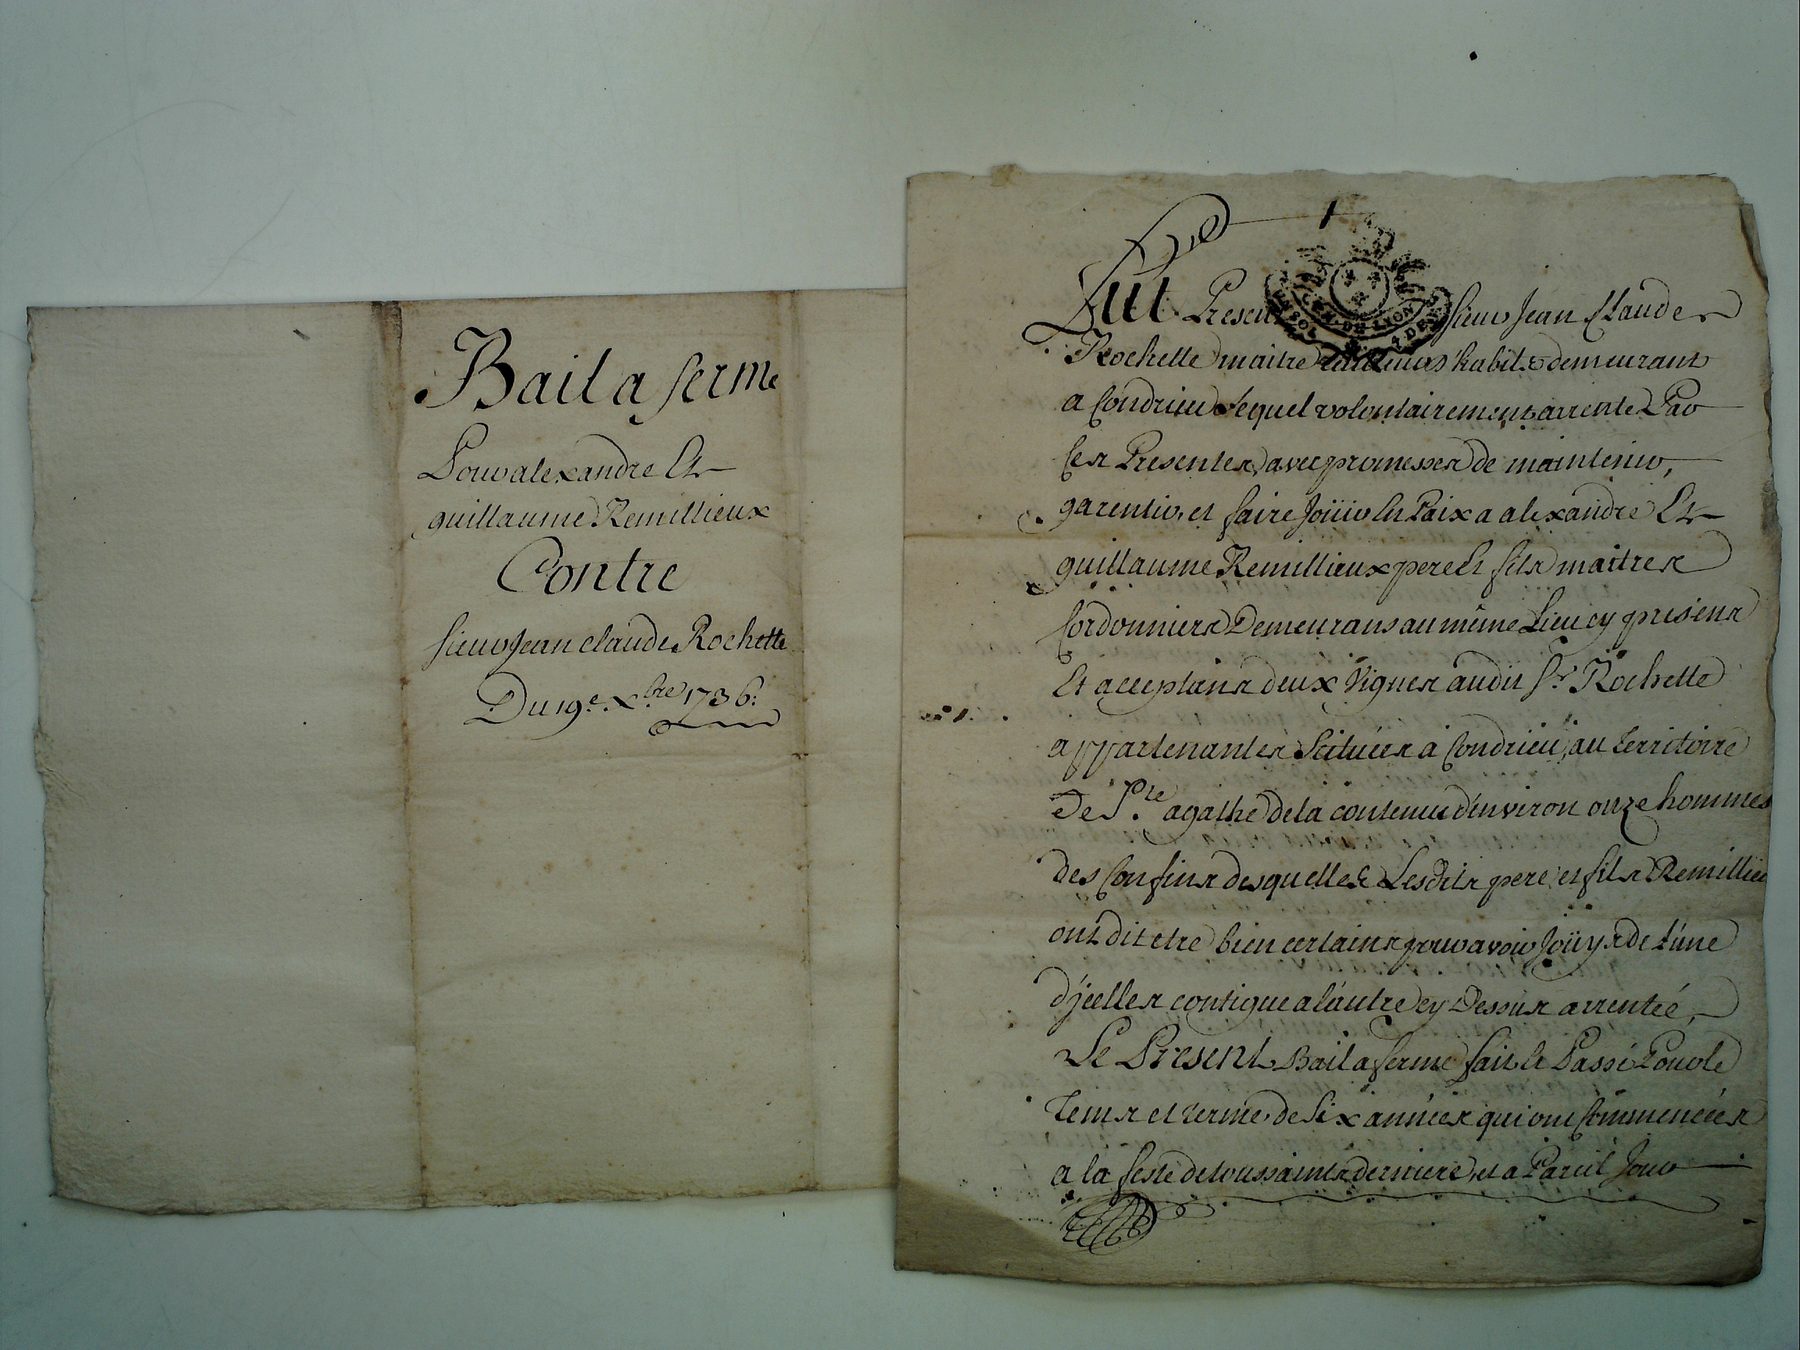 Bail a ferme
Pour alexandre Et
guillaume Remillieux
Contre
sieur Jean claude Rochette
Du 19e. Xbre 1736.
Fut Present sieur Jean Claude
Rochette maitre tailleur d'habits demeurant
a Condrieu Lequel volontairement arrente Par
Ces Presentes avec promesses de maintenir,
garentir, et faire Joüir En Paix a alexandre Et
guillaume Remillieux pere Et fils maitres
Cordonniers Demeurans au même Lieu cy presens
Et acceptans deux Vignes audit Sr. Rochette
appartenantes Scituées a Condrieu, au territoire
De Ste. agathe de la contenue d'environ onze hommes
des Confins desquelles Lesdits pere et fils Remillieu
ont dit etre bien certains pour avoir Joüys de l'une
d'jcelles contigue a l'autre cy Dessus arrentée,
Le Present Bail a ferme fait Et Passé Pour le
tems et terme de Six années qui ont Commencées
a la feste de toussaints derniere, et a Pareil Jour